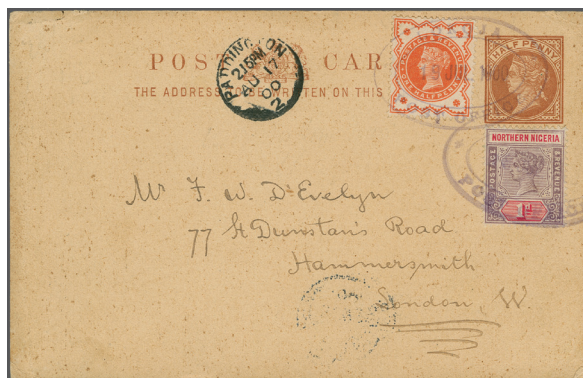 POST CARD
THE ADDRESS TO BE WRITTEN ON THIS
PADDINGTON
2.15PM
AU 17
00
2
POSTAGE & REVENUE
HALF PENNY
NORTHERN NIGERIA
POSTAGE & REVENUE
1d
Mr F. W. D'Evelyn
77 St Dunstan's Road
Hammersmith
London, W.